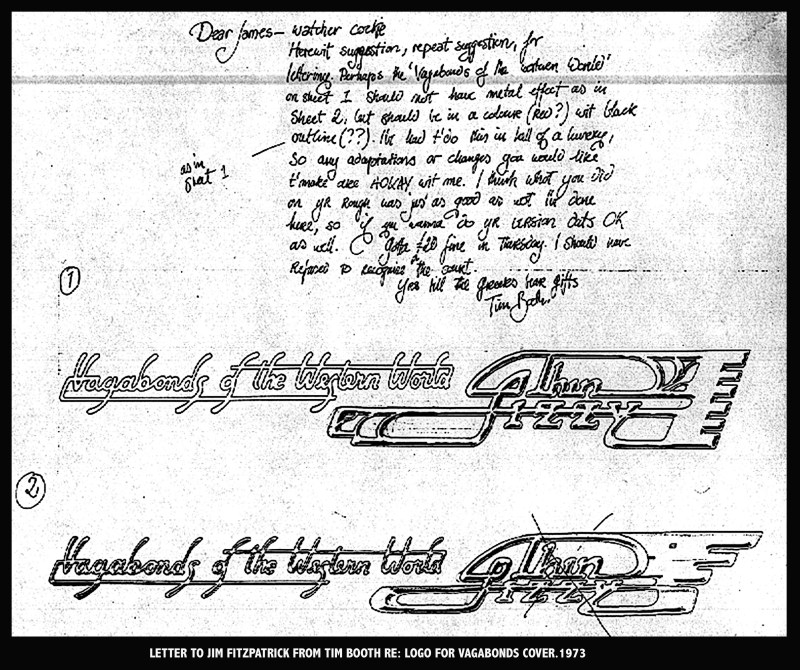 Dear James — watcher cockie
Herewit suggestion, repeat suggestion, for
lettering. Perhaps the 'Vagabonds of the Western World'
on sheet 1 should not have metal effect as in
Sheet 2, but should be in a colour (red?) wit black
outline (??). I've had t'do this in half of a hurry,
So any adaptations or changes you would like
t'make are AOKAY wit me. I think what you did
on yr rough was jus' as good as wot I'n done
here, so if you wanna do yr version dats OK
as well. Gotta fine in Thursday. I should have
Refused to recognise the court.
Yrs till the greeks bear gifts
Tim Booth
as in
sheet 1
1
Vagabonds of the Western World
Thin
Lizzy
2
Vagabonds of the Western World
Thin
Lizzy
LETTER TO JIM FITZPATRICK FROM TIM BOOTH RE: LOGO FOR VAGABONDS COVER.1973